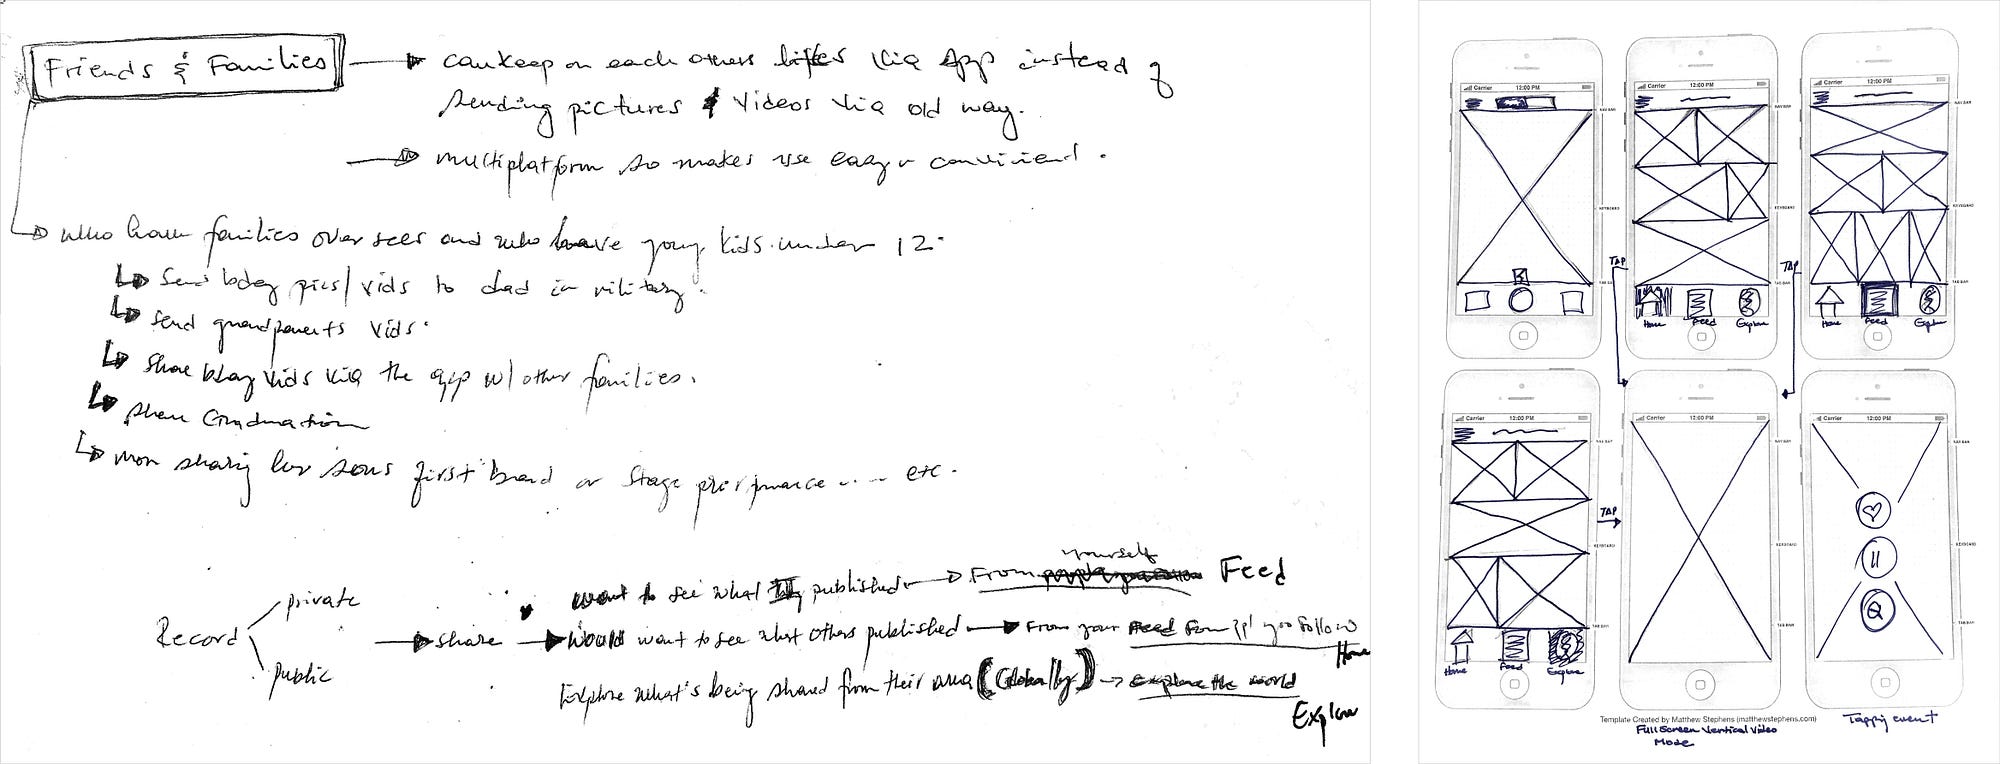 Friends & Families
can keep on each others lifes via App instead of
sending pictures & videos via old way.
multiplatform so makes use easy & convinient.
who have families over sees and who have young kids under 12.
Send bday pics/vids to dad in military.
send grandparents vids.
share bday vids via the app w/ other families.
share Graduation
mom sharing her sons first band or stage performance .... etc.
Record
private
public
share
want to see what published
From
yourself
Feed
Would want to see what others published
From your ppl you follow
Home
Explore what's being shared from their area (Globally)
explore the world
Explore
Carrier 12:00 PM
NAV BAR
KEYBOARD
TAB BAR
Carrier 12:00 PM
NAV BAR
KEYBOARD
TAB BAR
Home Feed Explore
TAP
Carrier 12:00 PM
NAV BAR
KEYBOARD
TAB BAR
Home Feed Explore
TAP
Carrier 12:00 PM
NAV BAR
KEYBOARD
TAB BAR
Home Feed Explore
TAP
Carrier 12:00 PM
NAV BAR
KEYBOARD
TAB BAR
Carrier 12:00 PM
NAV BAR
KEYBOARD
TAB BAR
Template Created by Matthew Stephens (matthewstephens.com)
Full Screen Vertical Video
Mode
Tapping event